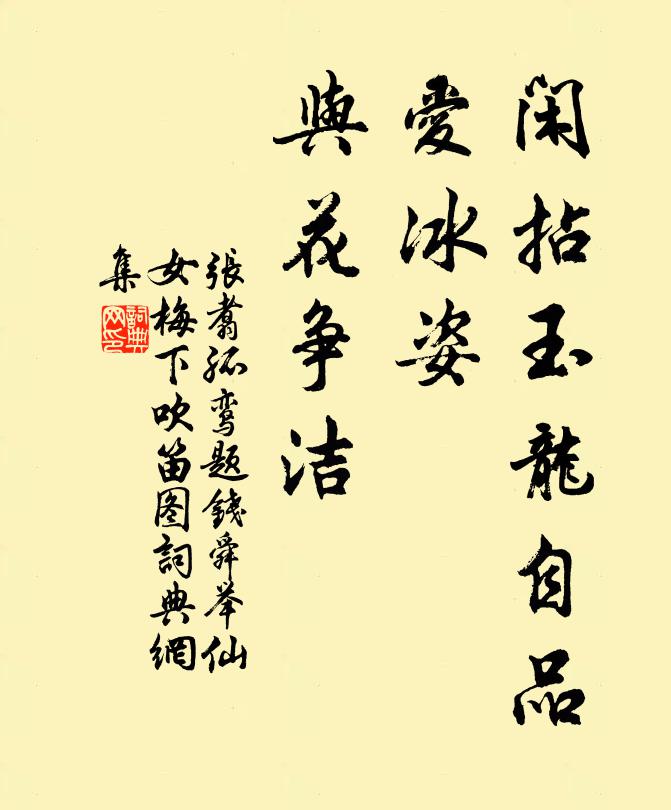 闲拈玉龍自品
愛冰姿
與花争洁
張翥孤鸾题錢舜举仙
女梅下吹笛图詞典網
集
詞典
网印